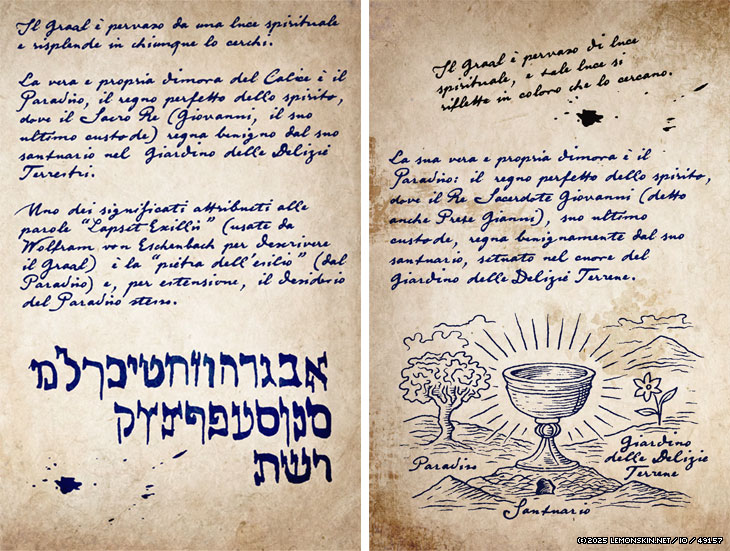 Il Graal è pervaso da una luce spirituale
e risplende in chiunque lo cerchi.
La vera e propria dimora del Calice è il
Paradiso, il regno perfetto dello spirito,
dove il Sacro Re (Giovanni, il suo
ultimo custode) regna benigno dal suo
santuario nel Giardino delle Delizie
Terrestri.
Uno dei significati attribuiti alle
parole “Lapsit Exillis” (usate da
Wolfram von Eschenbach per descrivere
il Graal) è la “pietra dell'esilio” (dal
Paradiso) e, per estensione, il desiderio
del Paradiso stesso.
אבגדהוזחטיכךלמ
םנןסעפףצץק
רשת
Il Graal è pervaso di luce
spirituale, e tale luce si
riflette in coloro che lo cercano.
La sua vera e propria dimora è il
Paradiso: il regno perfetto dello spirito,
dove il Re Sacerdote Giovanni (detto
anche Prese Gianni), suo ultimo
custode, regna benignamente dal suo
santuario, situato nel cuore del
Giardino delle Delizie Terrene.
Paradiso
Giardino
delle Delizie
Terrene
Santuario
(C) 2025 LEMONSKIN.NET / IO / 49157